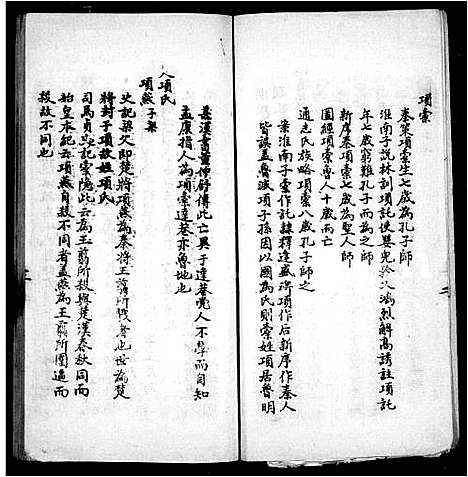 項橐
秦策項橐生七歲為孔子師
淮南子說林訓項託使嬰兒矜又修務解高誘註項託
年七歲窮難孔子而為之師
新序秦項橐七歲為聖人師
圖經項橐魯人十歲而亡
通志氏族略項橐八歲孔子師之
案淮南子橐作託隸釋逢盛碑項作后新序作秦人
皆誤蓋魯滅項子孫因以國為氏則橐姓項居魯明
甚漢書董仲舒傳此亡異于達巷党人不學而自知
孟康指人為項橐達巷亦魯地也
入項氏
項燕 子梁
史記梁父即楚將項燕為秦將王翦所戮者也世為楚
將封于項故姓項氏
司馬貞史記索隱此云為王翦所殺與楚漢春秋同而
始皇本紀云項燕自殺不同者蓋燕為王翦所圍逼而
殺故不同也
二
三